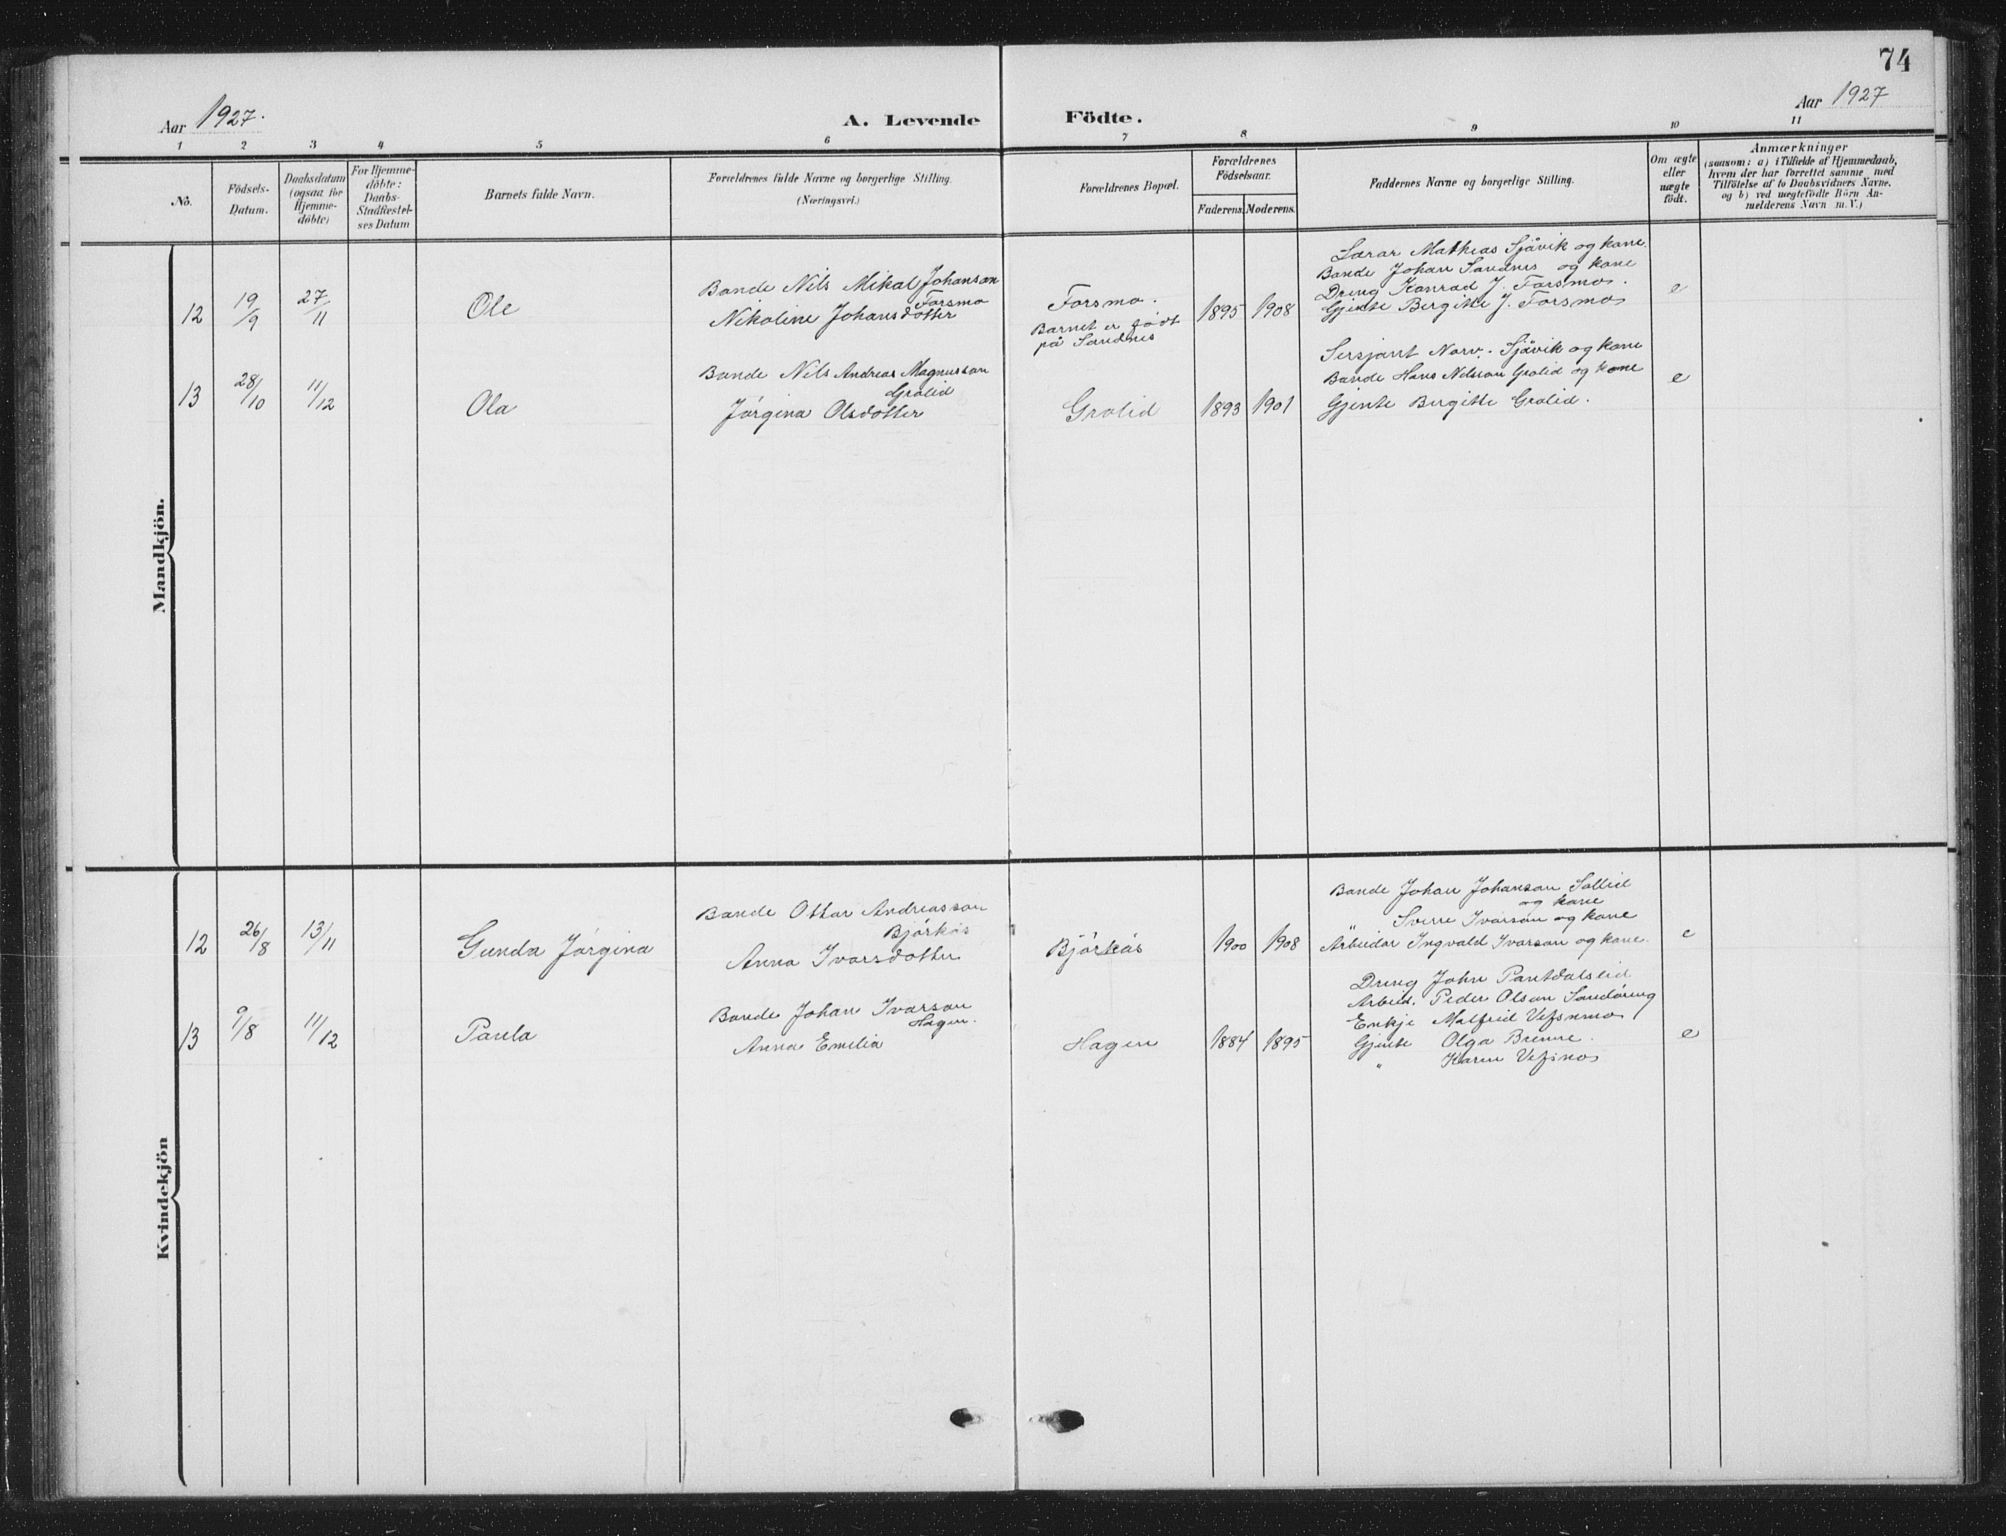 74
Aar 1927.
A. Levende
Födte.
Aar 1927
1 2 3 4 5 6 7 8 9 10 11
No.
Födsels-
Datum.
Daabsdatum
(ogsaa for
Hjemme-
döbte)
For Hjemme-
döbte:
Daabs-
Stadfestel-
ses Datum
Barnets fulde Navn.
Forældrenes fulde Navne og borgerlige Stilling.
(Næringsvei.)
Forældrenes Bopæl.
Forældrenes
Födselsaar.
Faderens. Moderens.
Faddernes Navne og borgerlige Stilling.
Om ægte
eller
uægte
födt.
Anmærkninger
(saasom: a) i Tilfælde af Hjemmedaab,
hvem der har forrettet samme med
Tilföielse af to Daabsvidners Navne,
og b) ved uægtefödte Börn An-
melderens Navn m. V.)
Mandkjön.
12 19/9 27/11 Ole
Bonde Nils Mikal Johanson
Forsmo
Nikoline Johansdotter
Forsmo.
Barnet er födt
på Sandnes
1895 1908
Lærar Mathias Sjåvik og kone
Bonde Johan Sandnes og kone
Dreng Konrad J. Forsmo.
Gjente Bergitte J. Forsmo
e
13 28/10 11/12 Ola
Bonde Nils Andreas Magnusson
Grolid
Jörgina Olsdotter
Grolid
1893 1901
Sersjant Norv. Sjåvik og kone
Bonde Hans Nilsson Grolid og kone
Gjente Bergitte Grolid.
e
Kvindekjön
12 26/8 13/11 Gunda Jörgina
Bonde Ottar Andreasson
Björkås
Anna Ivarsdotter
Björkås
1900 1908
Bonde Johan Johanson Sollid
og kone
Sverre Ivarson og kone
Arbeidar Ingvald Ivarson og kone.
e
13 9/8 11/12 Paula
Bonde Johan Ivarson
Hagen.
Anna Emilia
Hagen
1884 1895
Dreng John Pantdalslid
Arbeid. Peder Olson
Enkje Malfrid Vefsnmo
Gjente Olga Brenne.
" Karen Vefsnmo
e